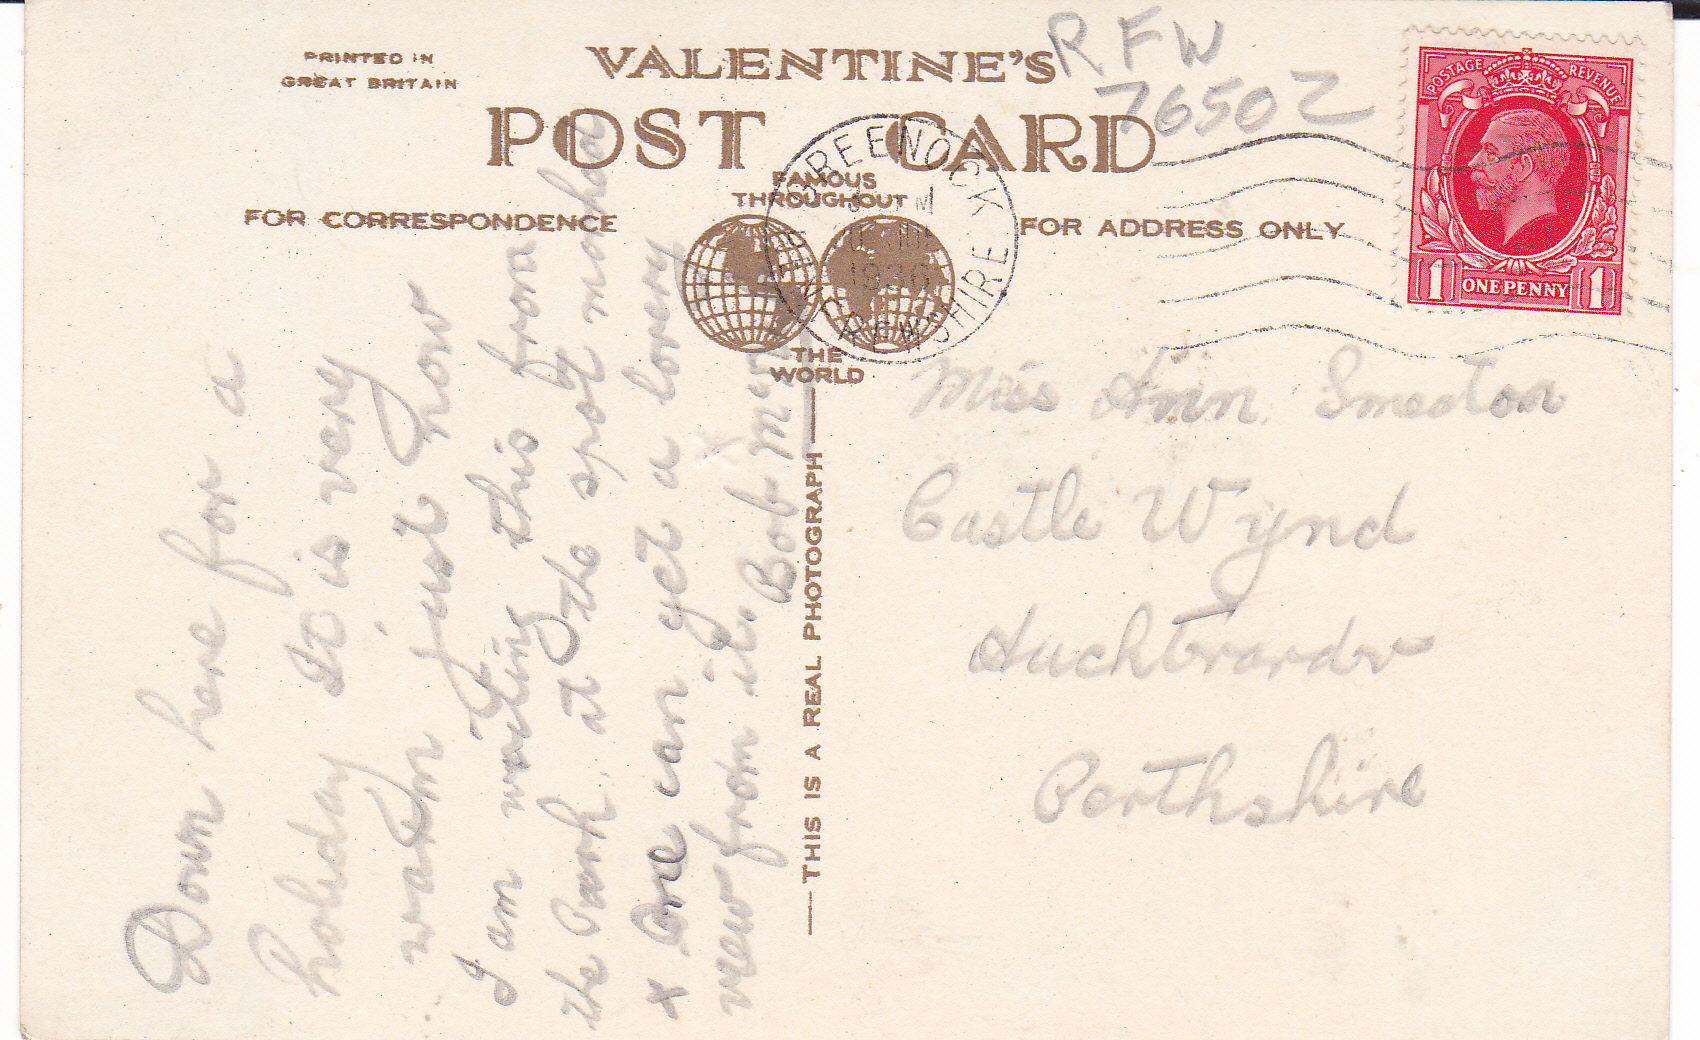 PRINTED IN
GREAT BRITAIN
VALENTINE'S
POST CARD
FAMOUS
THROUGHOUT
THE
WORLD
FOR CORRESPONDENCE
FOR ADDRESS ONLY
RFW
76502
GREENOCK
RENFREWSHIRE
1936
POSTAGE REVENUE
1 ONE PENNY 1
THIS IS A REAL PHOTOGRAPH
Down here for a
holiday It is very
warm just now
I am writing this from
the Park, at the spot marked
x One can get a lovely
view from it. Bob
Miss Ann Smeaton
Castle Wynd
Auchterarder
Perthshire